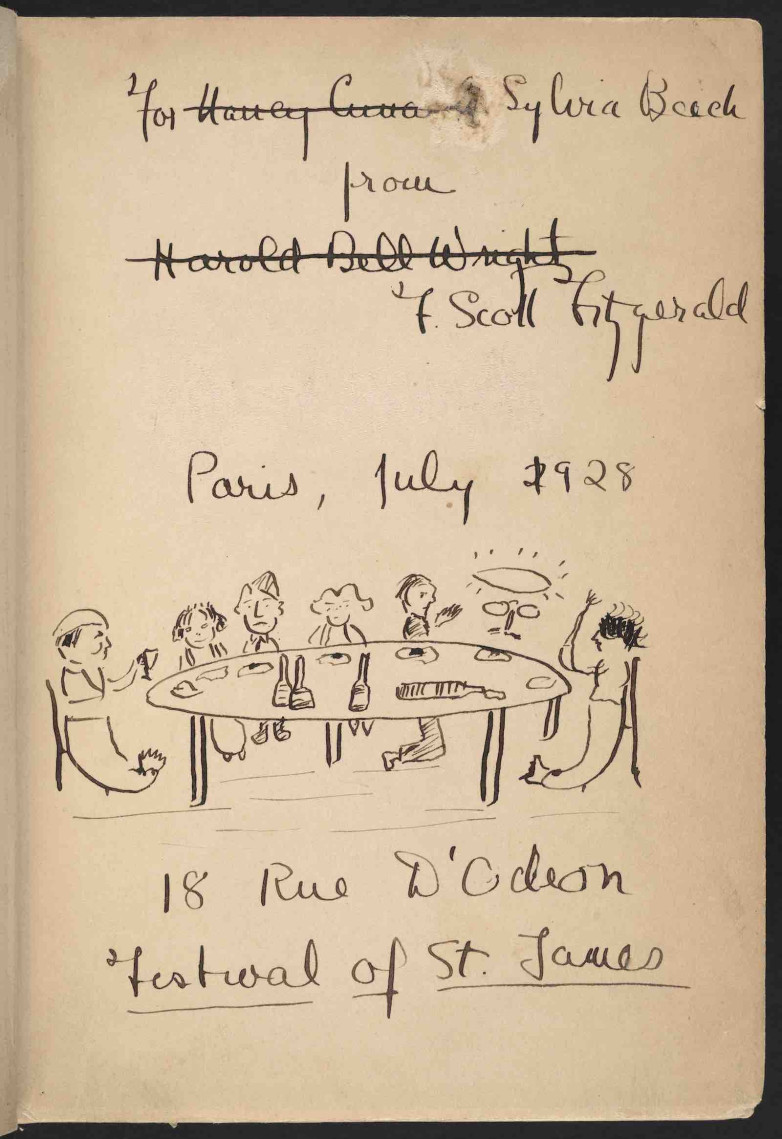 For Nancy Cunard Sylvia Beach
from
Harold Bell Wright
F. Scott Fitzgerald
Paris, July 1928
18 Rue D'Odeon
Festival of St. James